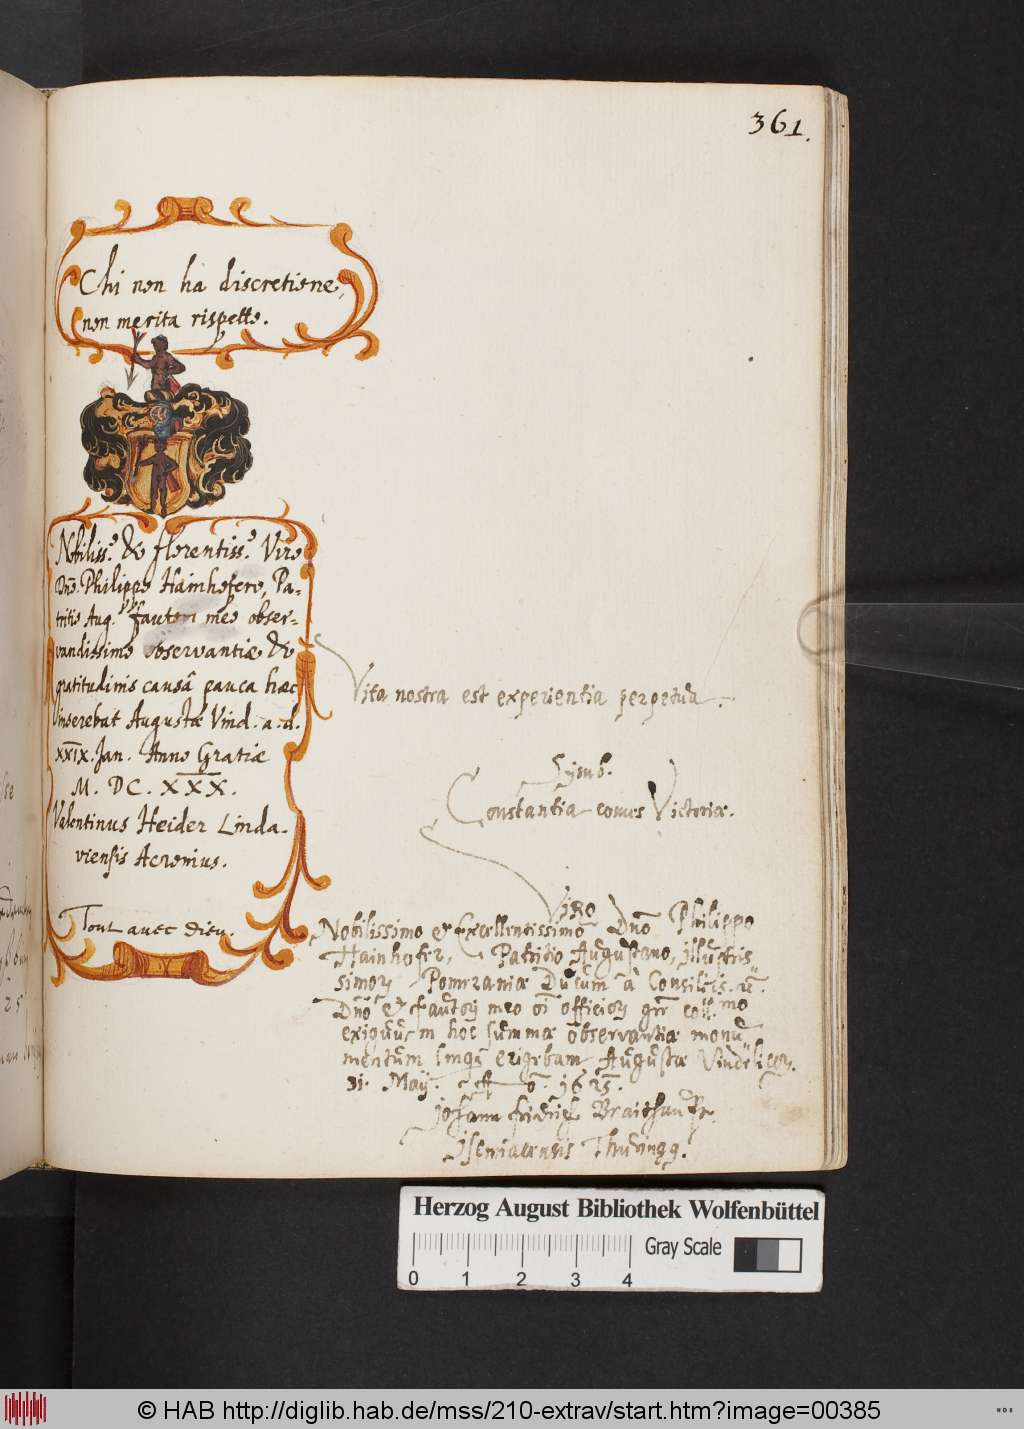 361.
Chi non ha discretione,
non merita rispetto.
Nobiliss.º & florentiss.º Viro
Dño. Philippo Hainhofero, Pa-
tritio Aug. fautori meo obser-
vandissimo observantiæ &
gratitudinis causâ pauca hæc
inserebat Augustæ Vind. a. d.
XXIX. Jan. Anno Gratiæ
M. DC. XXX.
Valentinus Heider Linda-
viensis Acronius.
Tout avec Dieu.
Vita nostra est experientia perpetua.
Symb.
Constantia comes Victoriæ.
Viro
Nobilissimo et Excellentissimo Dño Philippo
Hainhofer, Patritio Augustano, illustris
simor Pomeraniæ Ducum à Consiliis
Dño et fautori meo officior coll.mo
exiguum hoc summæ observantiæ monu
mentum erigebam Augustæ Vindelicor.
31. Maij. Aō. 1625.
Johann Fridrich
Isenacensis Thuringg.
Herzog August Bibliothek Wolfenbüttel
Gray Scale
0 1 2 3 4
© HAB http://diglib.hab.de/mss/210-extrav/start.htm?image=00385